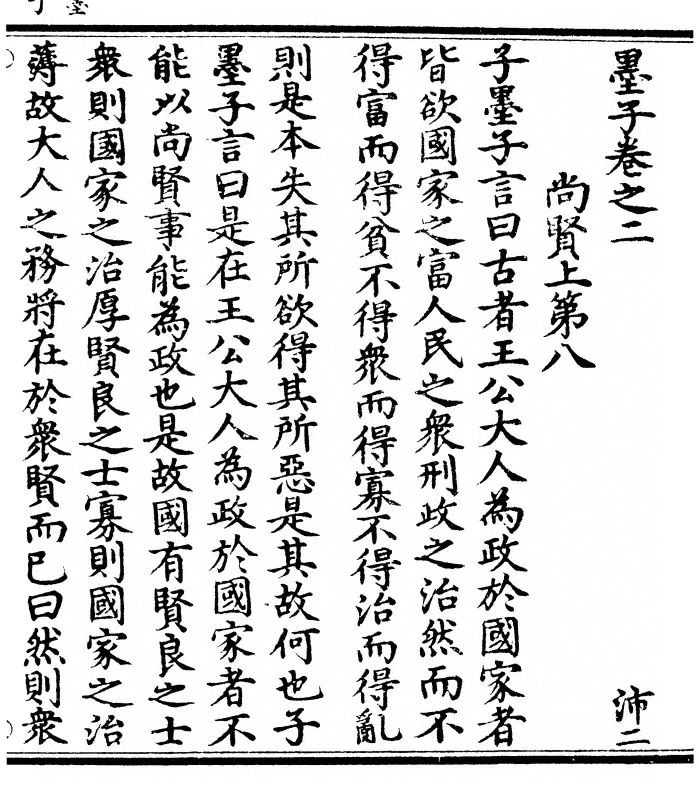 墨子卷之二 沛二
尚賢上第八
子墨子言曰古者王公大人為政於國家者
皆欲國家之富人民之衆刑政之治然而不
得富而得貧不得衆而得寡不得治而得亂
則是本失其所欲得其所惡是其故何也子
墨子言曰是在王公大人為政於國家者不
能以尚賢事能為政也是故國有賢良之士
衆則國家之治厚賢良之士寡則國家之治
薄故大人之務將在於衆賢而已曰然則衆